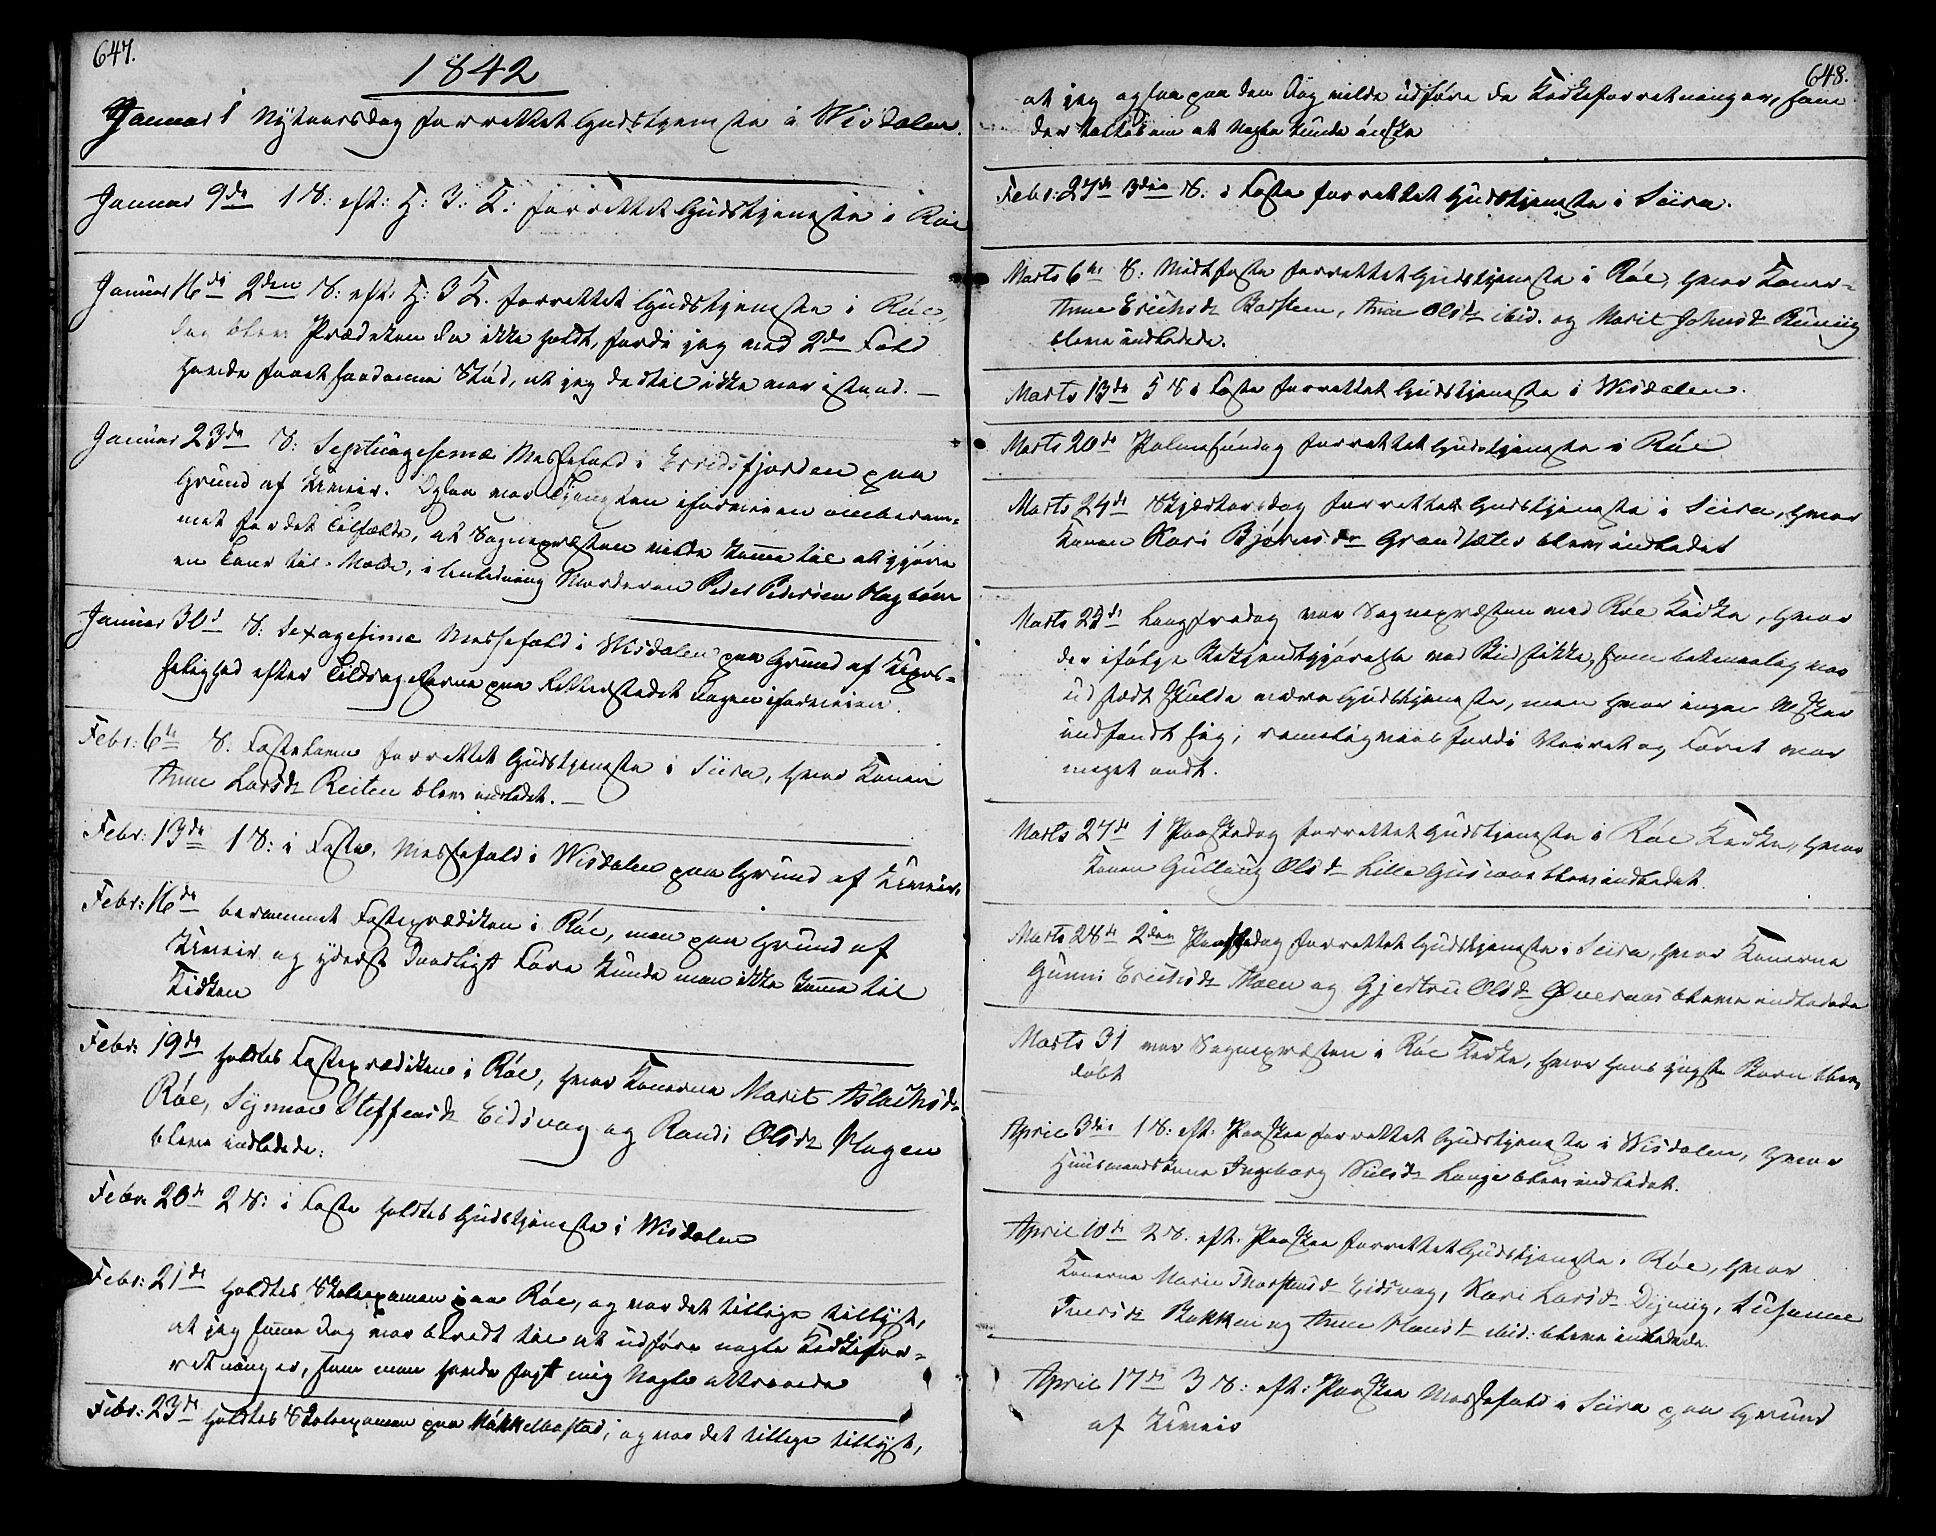 647.
1842
Januar 1 Nytaarsdag forrettet Gudstjeneste i Wisdalen.
Januar 9de 1 S: eft: H: 3: K: forrettet Gudstjeneste i Røe
Januar 16de 2den S: eft: H: 3 K. forrettet Gudstjeneste i Røe,
dog blev Prædeken da ikke holdt, fordi jeg ved 2de Fald
havde faaet saadanne Stød, at jeg dertil ikke var istand.
Januar 23de S: Septuagesimæ Messefald i Erridsfjorden paa
Grund af Uveir. Ogsaa var Tjenesten iforveien omberam-
met for det Tilfælde, at Sognepræsten vilde komme til at gjøre
en Tour til Molde, i Anledning Morderen Peder Pedersen Hagbøen
Januar 30d S: Sexagesimæ Messefald i Wisdalen paa Grund af Upas-
selighed efter Tildragelserne paa Retterstedet Dagen iforveien.
Febr: 6te S. Fastelavn forrettet Gudstjeneste i Siira, hvor Konen
Anne Larsdr Reiten blev indledet.
Febr: 13de 1 S: i Faste, Messefald i Wisdalen paa Grund af Uveir.
Febr: 16de berammet Fasteprædiken i Røe, men paa Grund af
Uveir og yderst daarligt Føre kunde man ikke komme til
Kirken
Febr: 19de holdtes Fasteprædiken i Røe, hvor Konerne Marit Aslachsdr
Røe, Synnøve Steffensdr Eidsvaag og Randi Olsdr Hagen
bleve indledede.
Febr. 20de 2 S: i Faste holdtes Gudstjeneste i Wisdalen
Febr: 21de holdtes Skoleexamen paa Røe, og var det tillige tillyst,
at jeg samme Dag var beredt til at udføre nogle Kirkefor-
retninger, som man havde sagt mig Nogle attraaede
Febr: 23de holdtes Skoleexamen paa Køkkelvastad, og var det tillige tillyst,
648.
at jeg ogsaa paa den Dag vilde udføre de Kirkeforretninger, som
der at Nogle kunde ønske
Febr: 27de 3die S: i Faste forrettet Gudstjeneste i Siira.
Marts 6te S: Midtfaste forrettet Gudstjeneste i Røe, hvor Koner-
Anne Erichsdr Boksteen, Anne Olsdr ibid. og Marit Johnsdr
bleve indledede.
Marts 13de 5 S i Faste forrettet Gudstjeneste i Wisdalen.
Marts 20de Palmesøndag forrettet Gudstjeneste i Røe
Marts 24de Skjærtorsdag forrettet Gudstjeneste i Siira, hvor
Konen Kari Bjørnsdr Grandsæter blev indledet
Marts 25de Langfredag var Sognepræsten ved Røe Kirke, hvor
der ifølge Bekjendtgjørelse ved Budstikke, som betimelig var
udfærdt skulde være Gudstjeneste, men hvor ingen Msker
indfandt sig, rimeligviis fordi Veiret og Føret var
meget ondt.
Marts 27de 1 Paaskedag forrettet Gudstjeneste i Røe Kirke, hvor
Konen Gullaug Olsdr Lille blev indledet.
Marts 28de 2den Paaskedag forrettet Gudstjeneste i Siira, hvor Konerne
Gunni Erichsdr Moen og Gjertru Olsdr Øveraas bleve indledede
Marts 31 var Sognepræsten i Røe Kirke, hvor hans yngste Barn blev
døbt
April 3die 1 S: eft: Paaske forrettet Gudstjeneste i Wisdalen, hvor
Huusmandskone Ingeborg Nielsdr Lange blev indledet.
April 10de 2 S. eft. Paaske forrettet Gudstjeneste i Røe, hvor
Konerne Marie Thorstensdr Eidsvaag, Kari Larsdr Dyrviig, Susanne
Iversdr Bakken og Anne Hansdr ibid: bleve indledede.
April 17de 3 S: eft: Paaske Messefald i Siira paa Grund
af Uveir